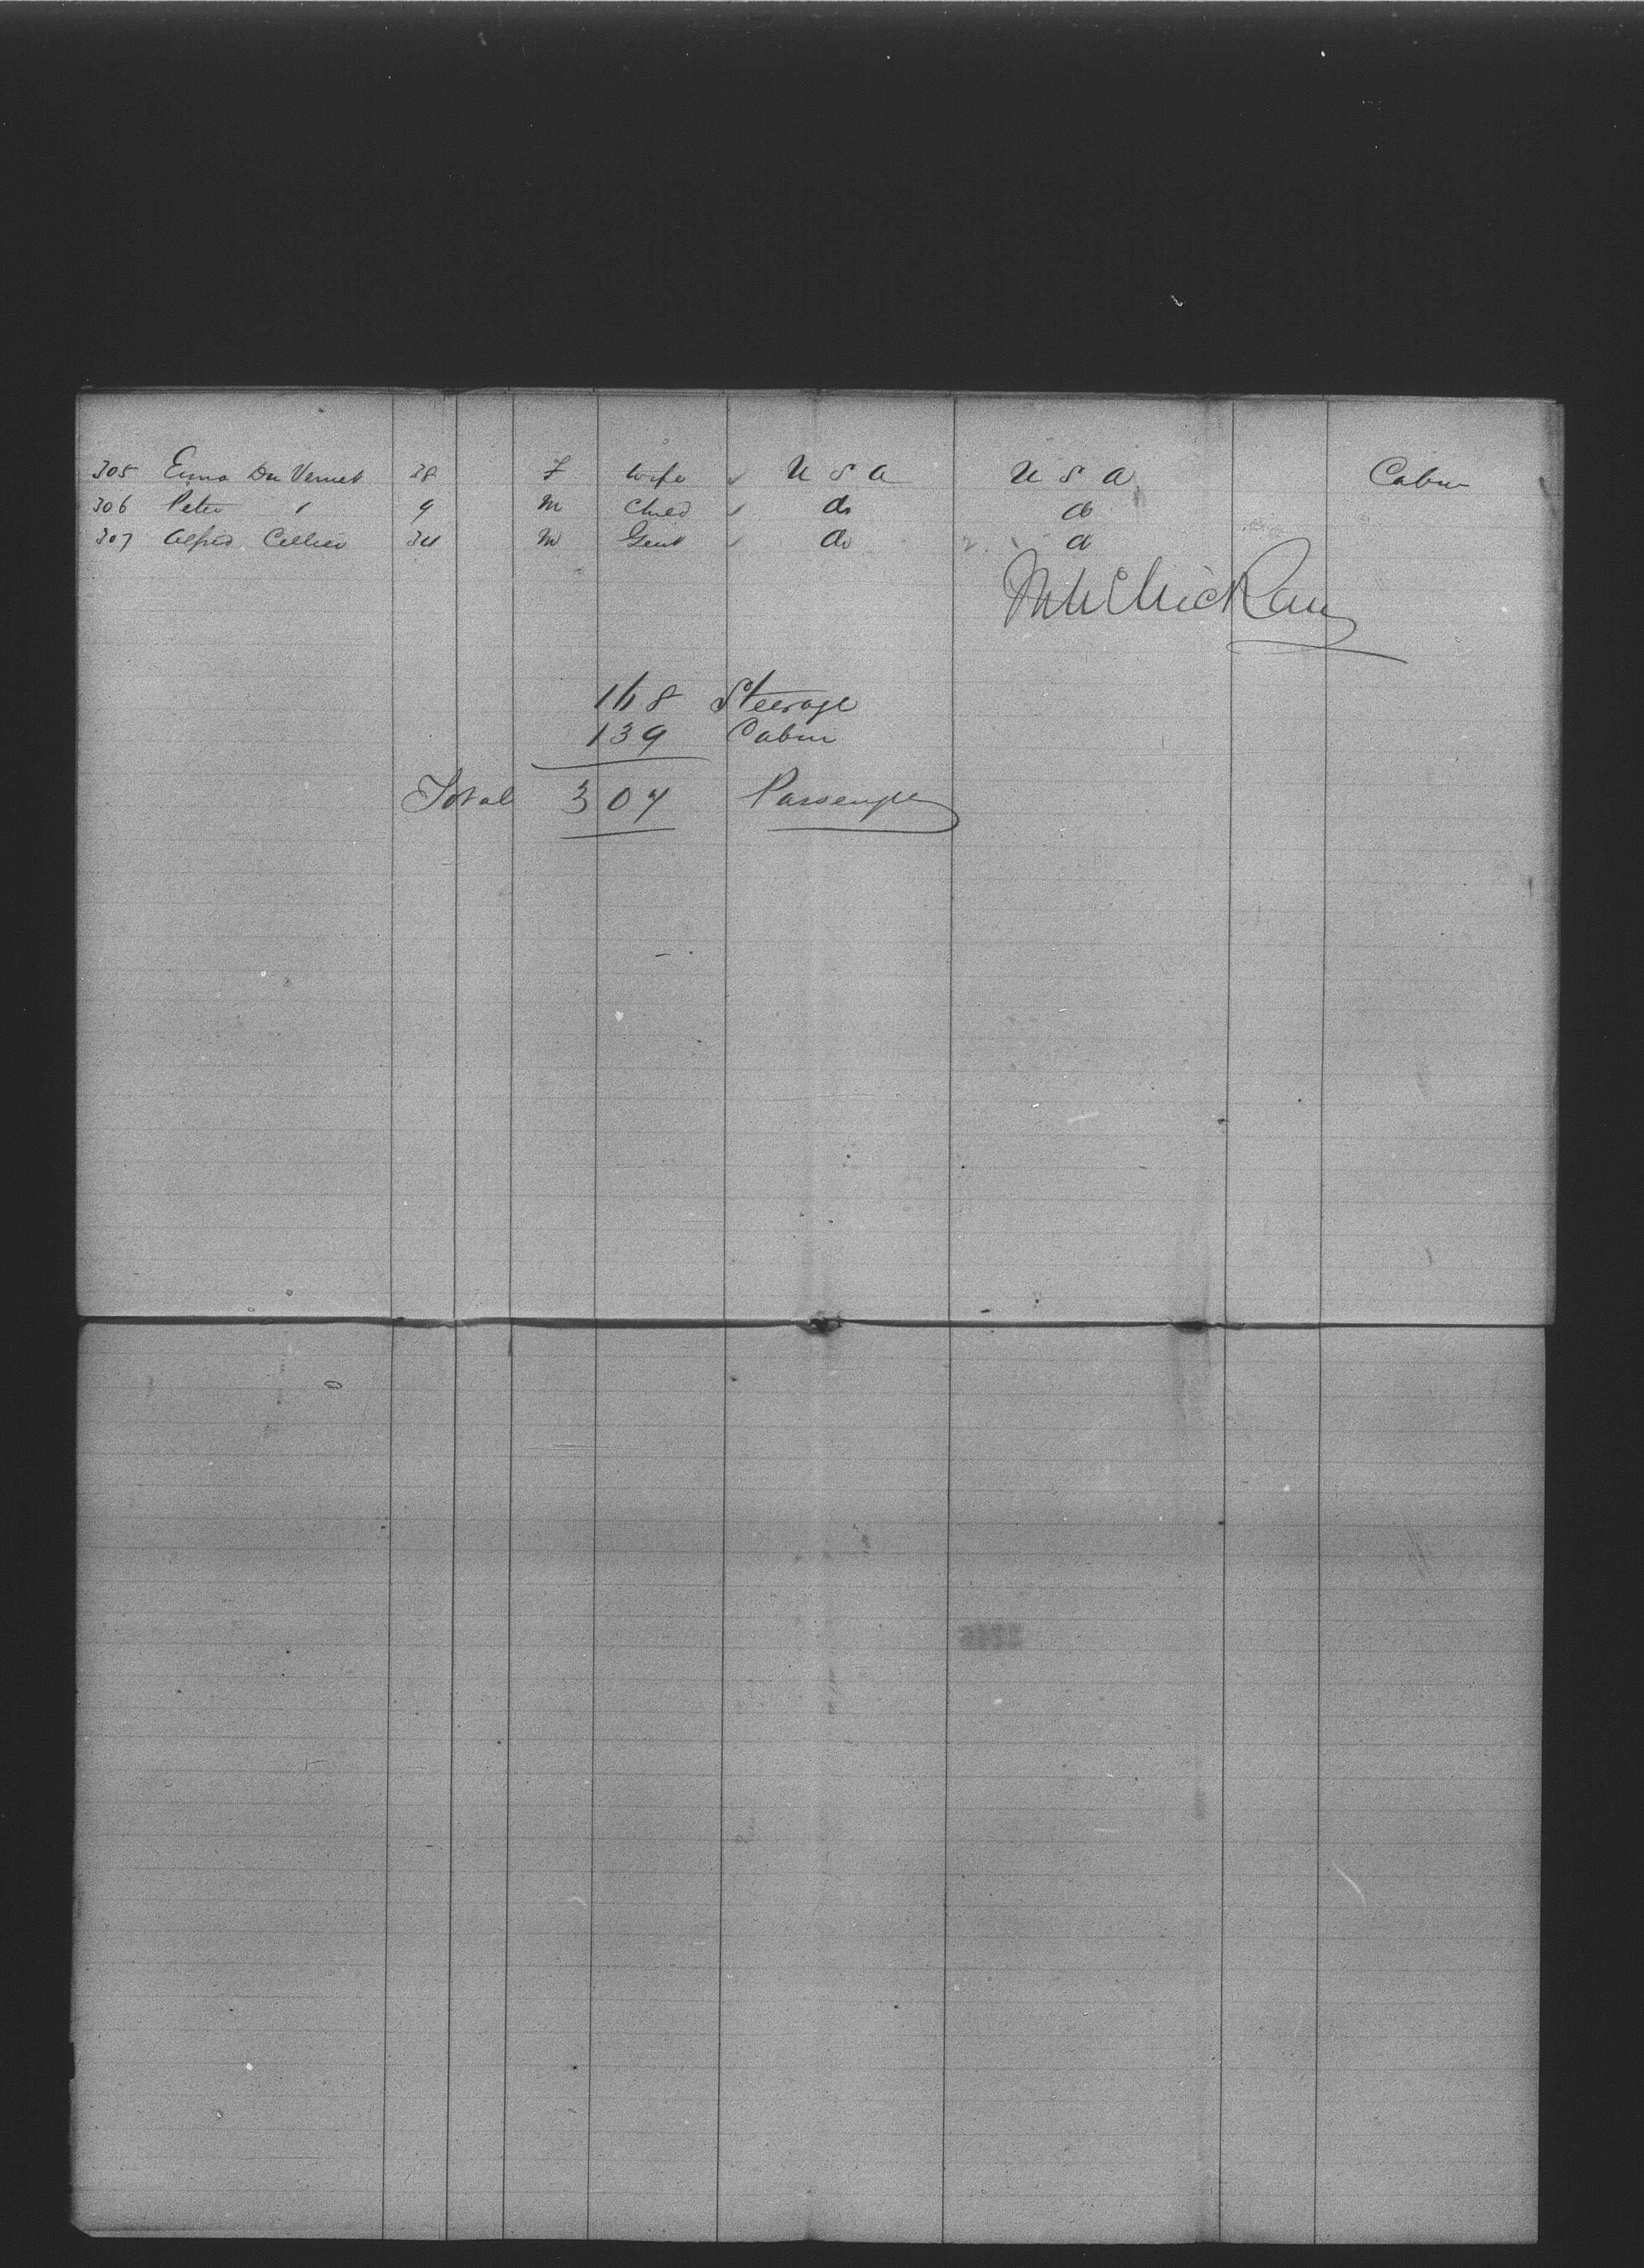 305 Emma Du Vernet 38 F Wife U S A U S A Cabin
306 Peter " 9 M Child do do
307 Alfred Cellier 34 M Gent do do
168 Steerage
139 Cabin
Total 307 Passengers